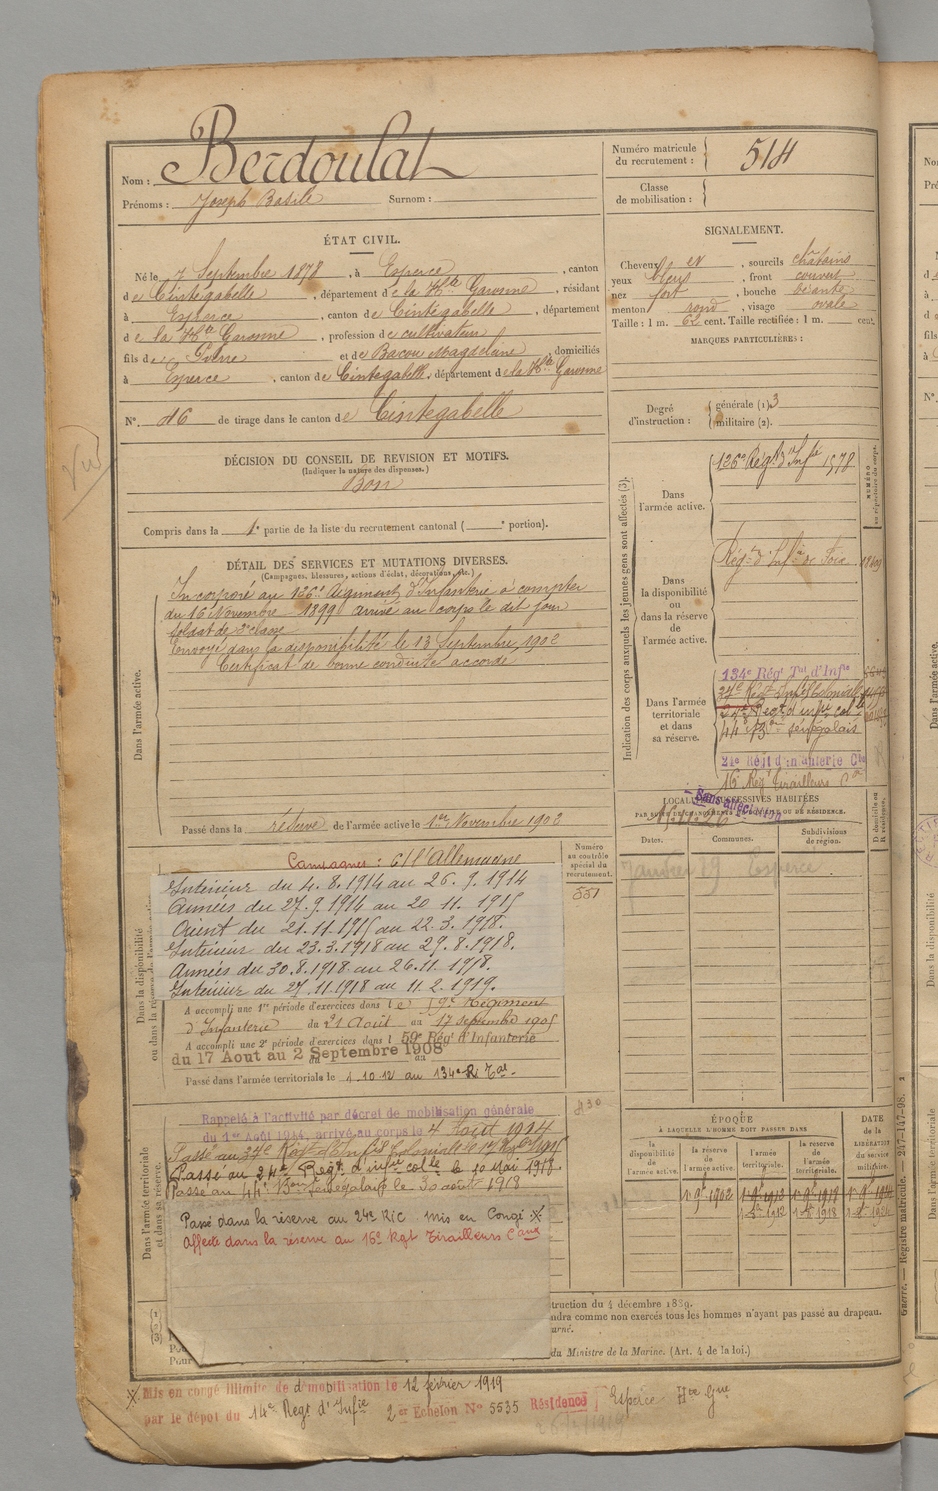 Nom : Berdoulat
Prénoms : Joseph Basile Surnom :
Numéro matricule
du recrutement : 514
Classe
de mobilisation :
ÉTAT CIVIL.
Né le 7 Septembre 1878, à Esperce, canton
de Cintegabelle, département de la Hte Garonne, résidant
à Esperce, canton de Cintegabelle, département
de la Hte Garonne, profession de cultivateur
fils de Pierre et de Bacou Magdelaine, domiciliés
à Esperce, canton de Cintegabelle, département de la Hte Garonne
N°. 46 de tirage dans le canton de Cintegabelle
SIGNALEMENT.
Cheveux et, sourcils châtains
yeux bleus, front couvert
nez fort, bouche béante
menton rond, visage ovale
Taille : 1 m. 62 cent. Taille rectifiée : 1 m. cent.
MARQUES PARTICULIÈRES :
Degré
d'instruction :
générale (1). 3
militaire (2).
Vu
DÉCISION DU CONSEIL DE REVISION ET MOTIFS.
(Indiquer la nature des dispenses.)
Bon
Compris dans la 1e partie de la liste du recrutement cantonal ( portion).
DÉTAIL DES SERVICES ET MUTATIONS DIVERSES.
(Campagnes, blessures, actions d'éclat, décorations, etc.)
Dans l'armée active.
Incorporé au 126e Régiment d'Infanterie à compter
du 16 Novembre 1899 arrivé au corps le dit jour
soldat de 2e classe
Envoyé dans la disponibilité le 13 Septembre 1902
Certificat de bonne conduite accordé
Passé dans la réserve de l'armée active le 1er Novembre 1902
Indication des corps auxquels les jeunes gens sont affectés (3).
NUMÉRO
au répertoire du corps.
Dans
l'armée active.
126e Régt d'Infie 1578
Dans
la disponibilité
ou
dans la réserve
de
l'armée active.
Régt d'Infie de Foix
Dans l'armée
territoriale
et dans
sa réserve.
134e Régt Tal d'Infie
34e Régt Infie Coloniale
24e Régt d'infie cole
44e Bon sénégalais
24e Régt d'Infanterie Cle
16 Régt tirailleurs
Sans affectation
LOCALITÉS SUCCESSIVES HABITÉES
PAR SUITE DE CHANGEMENTS DE DOMICILE OU DE RÉSIDENCE.
Dates.
Communes.
Subdivisions
de région.
D. domicile ou
R. résidence.
Janvier 19 Esperce
Numéro
au contrôle
spécial du
recrutement.
551
430
Dans la disponibilité
ou dans la réserve de l'armée active.
Campagnes : C/ l'Allemagne
Intérieur du 4.8.1914 au 26.9.1914
Armées du 27.9.1914 au 20 11.1915
Orient du 21.11.1915 au 22.3.1918.
Intérieur du 23.3.1918 au 29.8.1918.
Armées du 30.8.1918 au 26.11.1918.
Intérieur du 27.11.1918 au 11.2.1919.
A accompli une 1re période d'exercices dans le Régiment
d'Infanterie du 21 Août au 17 septembre 1905
A accompli une 2e période d'exercices dans l 59e Régt d'Infanterie
du 17 Aout au 2 Septembre 1908
Passé dans l'armée territoriale le 1.10.12 au 134e R. Tal.
Dans l'armée territoriale
et dans sa réserve.
Rappelé à l'activité par décret de mobilisation générale
du 1er Août 1914, arrivé au corps le 4 Août 1914
Passé au 34e Régt d'Infie Coloniale le
Passé au 24e Régt d'infie colle le 10 Mai 1918.
Passé au 44e Bon Sénégalais le 30 août 1918
Passé dans la réserve au 24e RIC mis en Congé : X
Affecté dans la réserve au 16e Rgt Tirailleurs Caux
ÉPOQUE
À LAQUELLE L'HOMME DOIT PASSER DANS
la
disponibilité
de
l'armée active.
la réserve
de
l'armée active.
l'armée
territoriale.
la réserve
de
l'armée
territoriale.
DATE
de la
LIBÉRATION
du service
militaire.
1er 9bre 1902
1er 8bre 1912
1er 8bre 1918
(1)
(2)
(3)
struction du 4 décembre 1889.
ndra comme non exercés tous les hommes n'ayant pas passé au drapeau.
ourné.
du Ministre de la Marine. (Art. 4 de la loi.)
Pour
Pour
Guerre. — Registre matricule. — 247-147-98. 1
X Mis en congé illimité de démobilisation le 12 février 1919
par le dépôt du 14e Regt d'Infie 2er Echelon N° 5535 Résidence Esperce Hte Gne